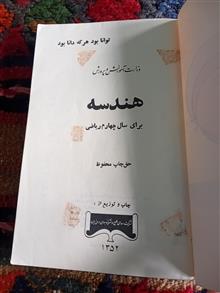 توانا بود هرکه دانا بود
وزارت آموزش و پرورش
هندسه
برای سال چهارم ریاضی
حق چاپ محفوظ
چاپ و توزیع از:
۱۳۵۲